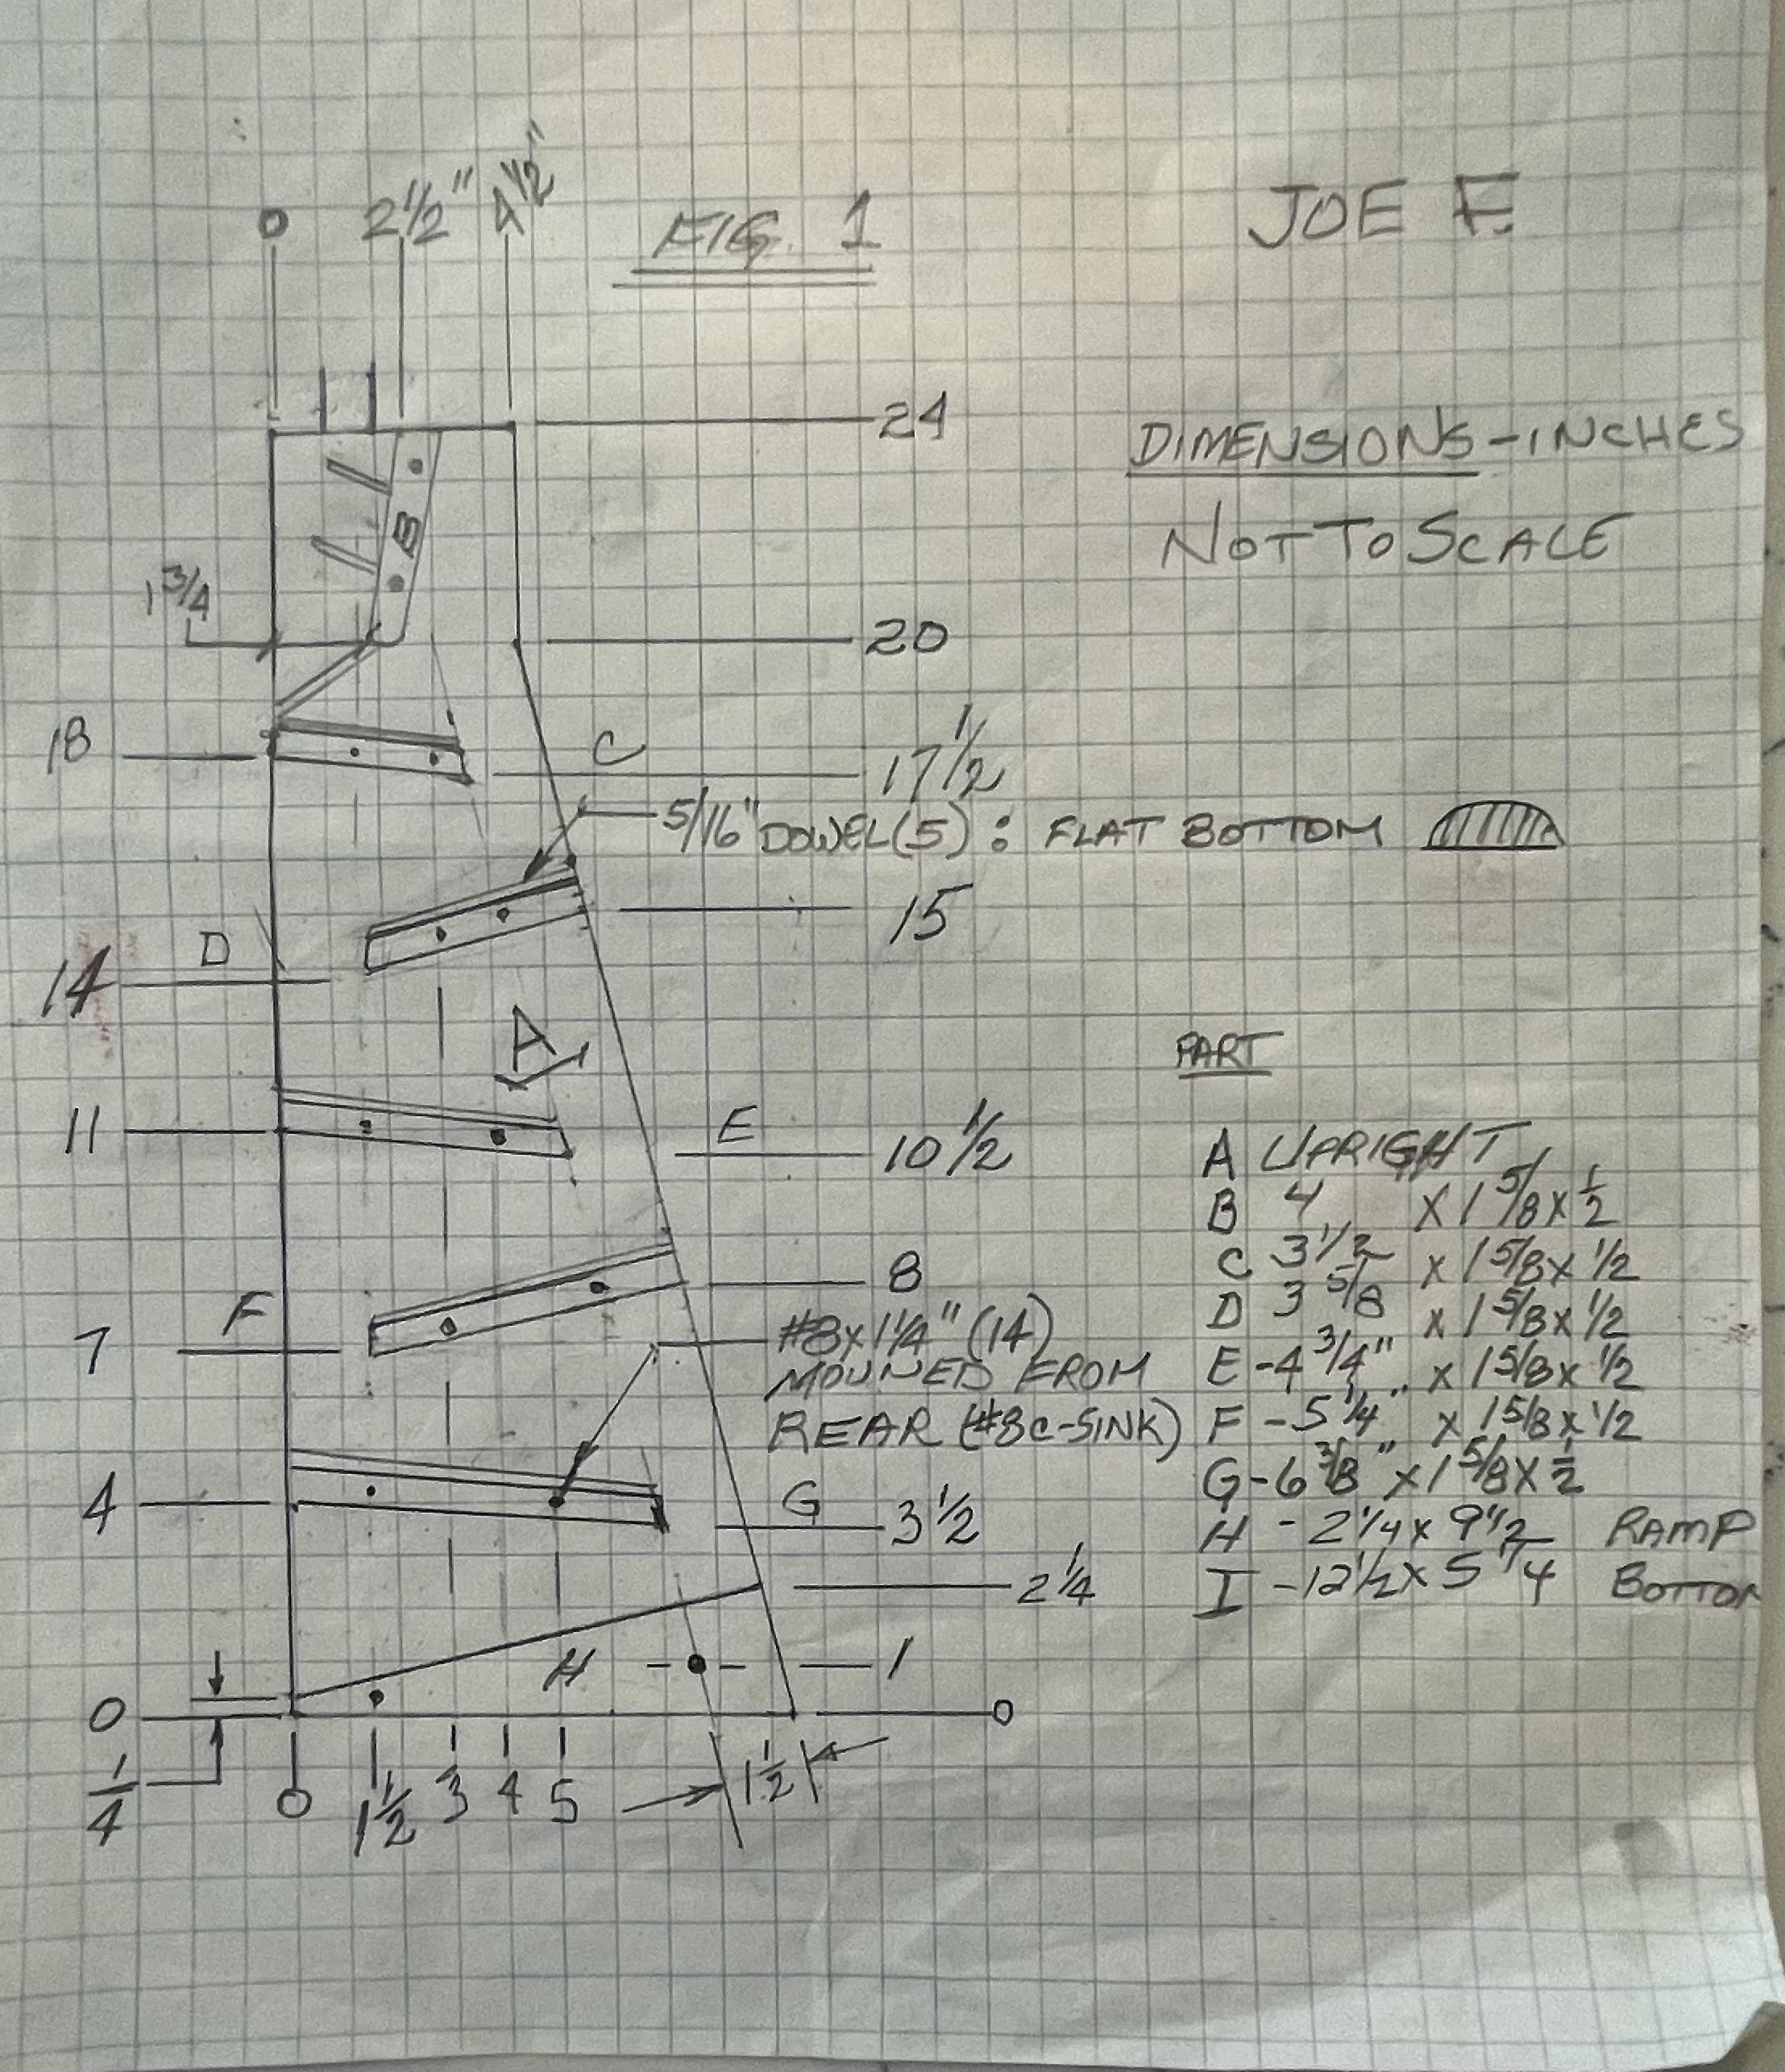 0 2 1/2" 4 1/2"
FIG. 1
JOE F.
24
DIMENSIONS - INCHES
NOT TO SCALE
B
1 3/4
20
18
C
17 1/2
5/16" DOWEL (5) : FLAT BOTTOM
D
15
14
A
PART
11
E
10 1/2
A UPRIGHT
B 4 X 1 5/8 X 1/2
C 3 1/2 X 1 5/8 X 1/2
D 3 5/8 X 1 5/8 X 1/2
E - 4 3/4" X 1 5/8 X 1/2
F - 5 1/4" X 1 5/8 X 1/2
G - 6 3/8" X 1 5/8 X 1/2
H - 2 1/4 X 9 1/2 RAMP
I - 12 1/2 X 5 1/4 BOTTOM
8
F
7
#8 X 1 1/4" (14)
MOUNED FROM
REAR (#8 C-SINK)
4
G
3 1/2
2 1/4
H
1
0
0
1/4
0 1 1/2 3 4 5 1 1/2